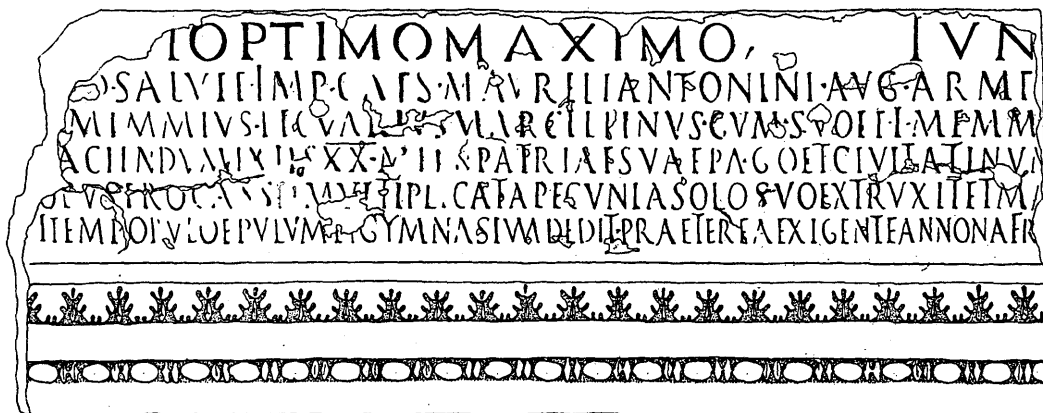 IOPTIMOMAXIMO, IVN
O·SALVTE·IMP·CAES·M·AVRELIANTONINI·AVG·ARME
MEMMIVS· MARCELLINVS·CVM·SVOETL·MEMM
FACIENDVM XX· PATRIAESVAEPAGOETCIVITATINVM
MVLTIPLICATAPECVNIASOLOSVOEXTRVXITETM
ITEMPOPVLOEPVLVMETGYMNASIVMDEDIT·PRAETEREAEXIGENTEANNONAEFR